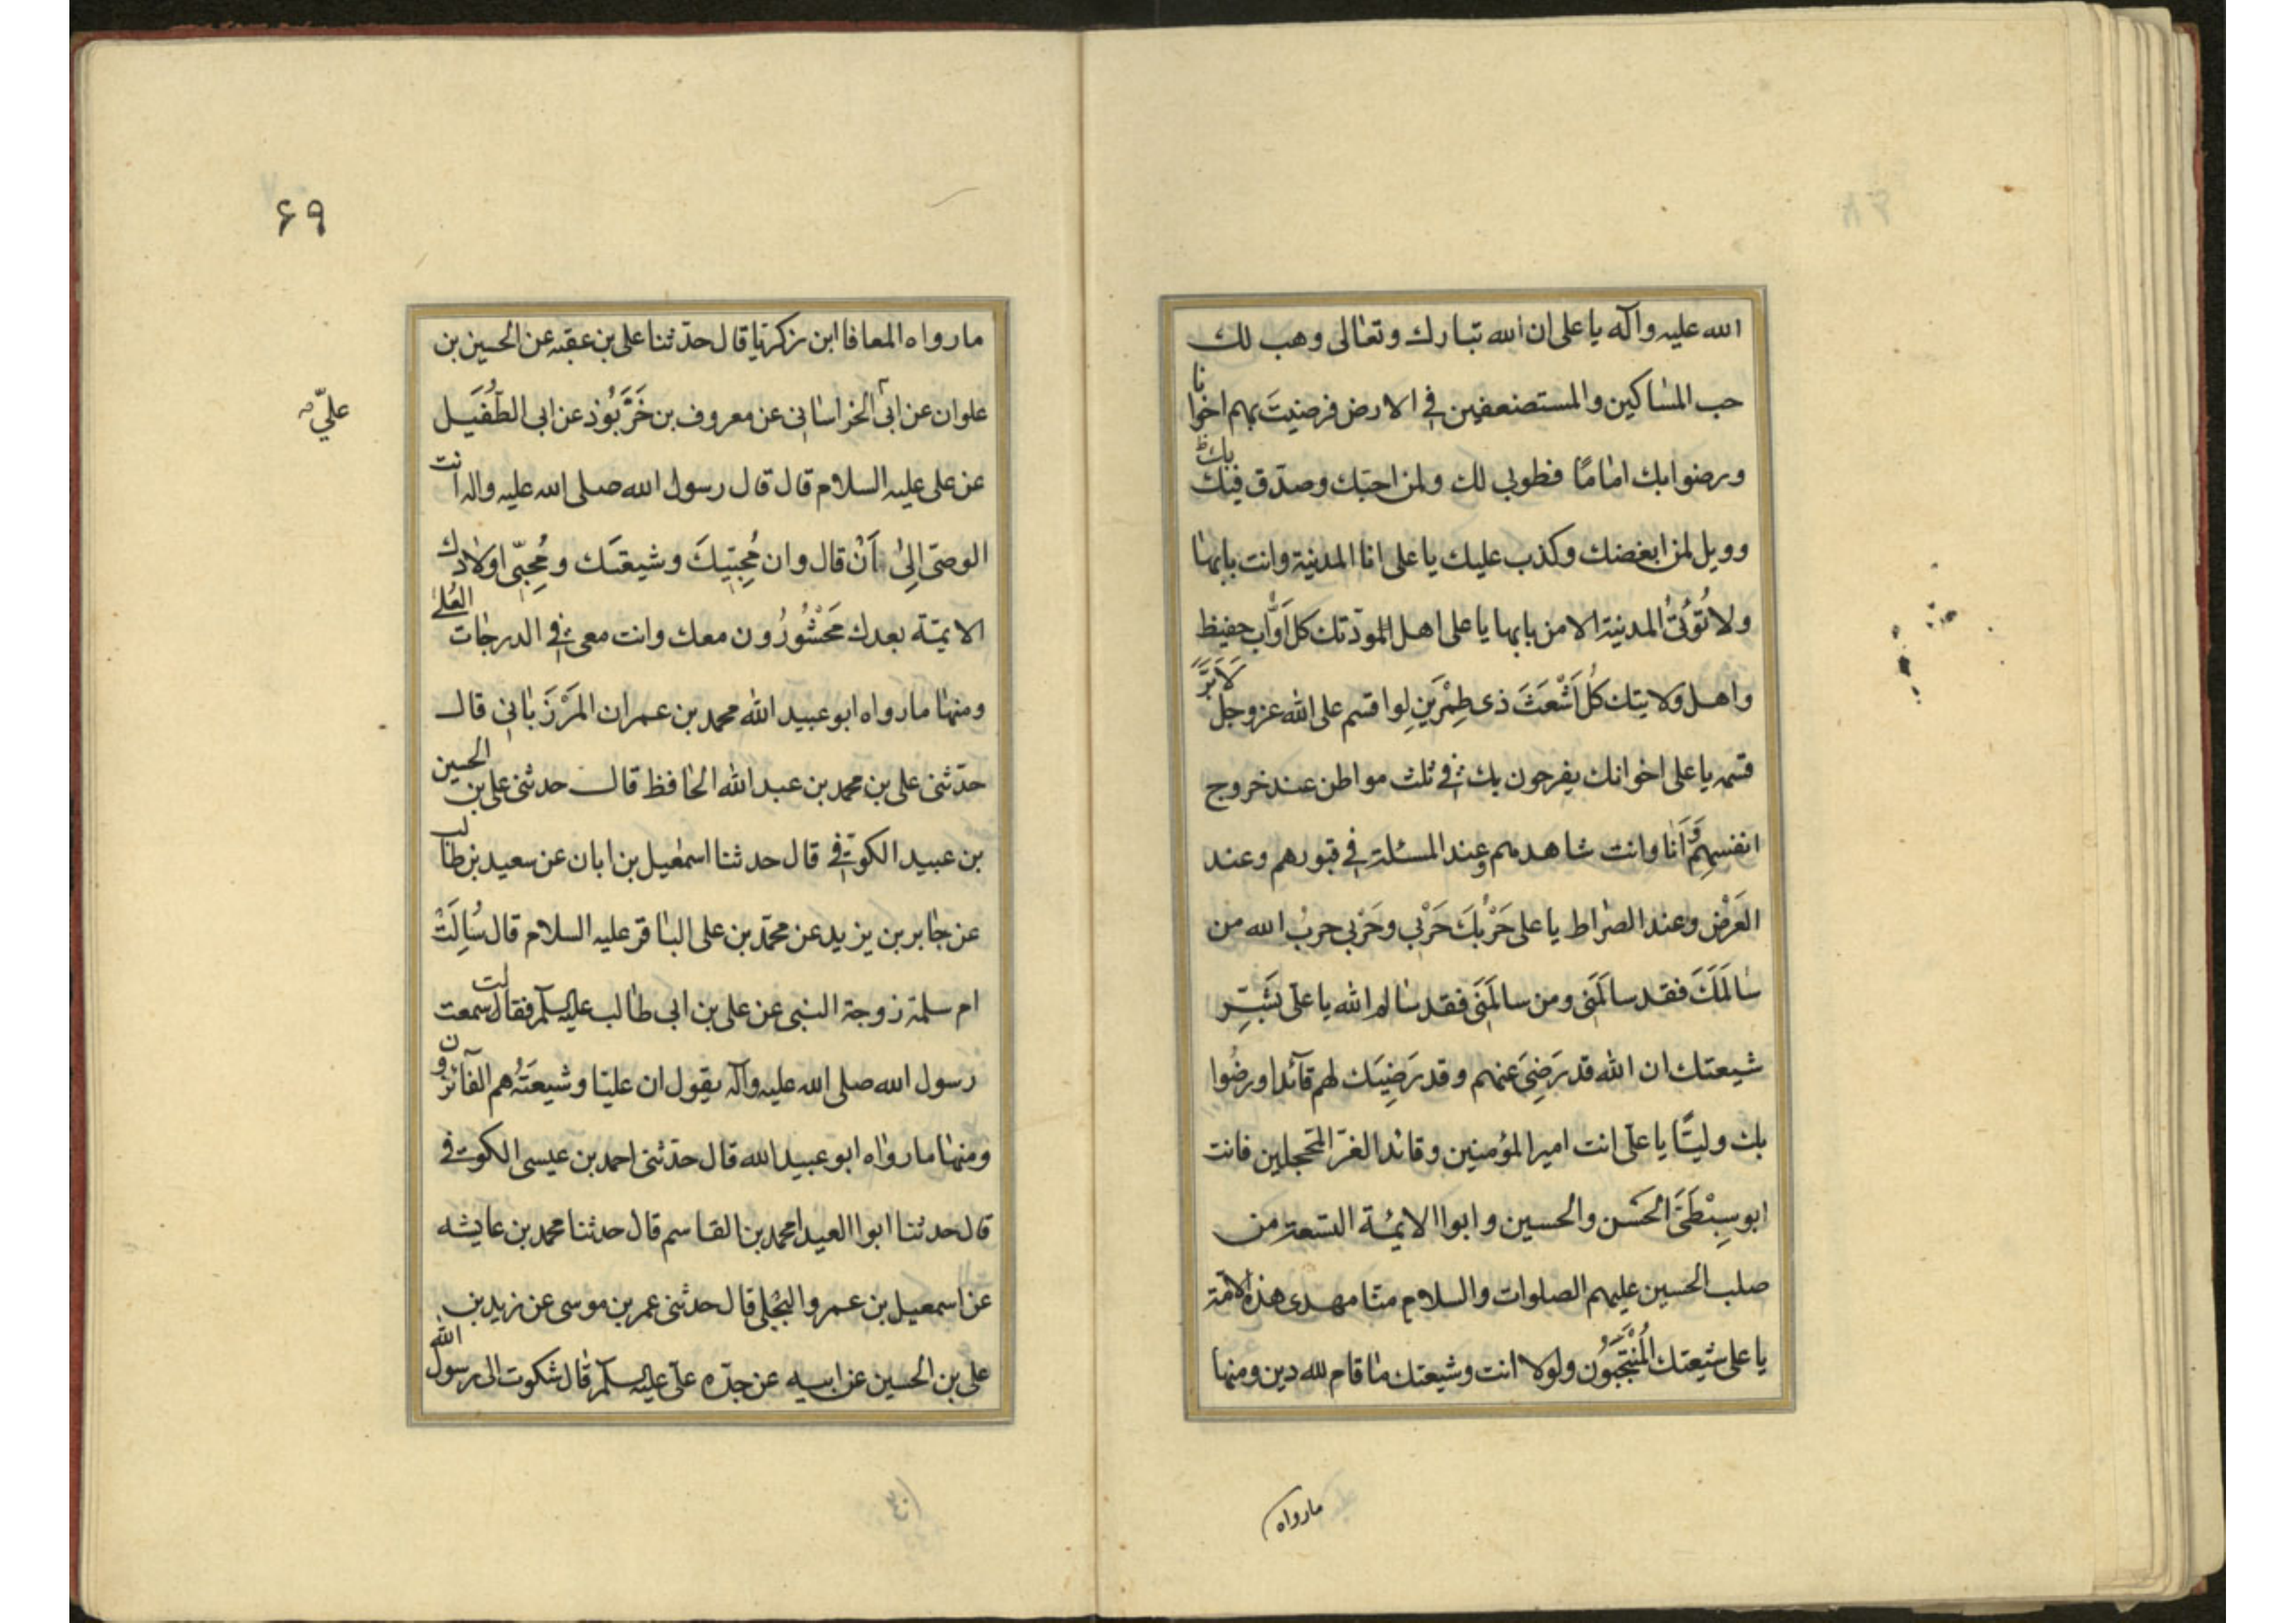 الله عليه وآله يا على ان الله تبارك وتعالى وهب لك
حب المساكين والمستضعفين في الارض فرضيتَ بهم اخوانا
ورضوا بك اماماً فطوبى لك ولمن احبّك وصدّق فيك بك ظ
وويل لمن ابغضك وكذب عليك يا على انا المدينة وانت بابها
ولا تُؤتىُ المدينة الا من بابها يا على اهل المودّتك كل اَوَّاب حفيظ
واهل ولايتك كُل اَشْعَثَ ذى طِمْرَينِ لو اقسم على الله عزوجل لَاَبَرَّ
قسمه يا على اخوانك يفرحون بك في ثلث مواطن عند خروج
انفسهِم وَاَنَا وانت شاهدهم وعند المسئلة في قبورهم وعند
العَرْض وعند الصراط يا على حَرْبُكَ حَرْبي وحَرْبي حربُ الله من
سالَمَكَ فقد سالَمَنى ومن سالَمَنى فقد سالم الله يا على بَشِّر
شيعتك ان الله قد رَضِىَ عنهم وقد رَضِيَك لهم قآئدا ورضُوا
بك وليّا يا على انت امير المؤمنين وقائد الغرّ المحجلين فانت
ابو سِبْطَىَّ الحَسَن والحسين وابوا الايمّة التسعة من
صلب الحسين عليهم الصلوات والسلام منّا مهدى هذه الامّة
يا على شيعتك المُنْتَجَبُون ولولا انت وشيعتك ما قام لله دين ومنها
مارواه
۶۹
ما رواه المعافا ابن زكريّا قال حدّثنا على بن عقبه عن الحسين بن
علوان عن ابى الخراسانى عن معروف بن خَرَّبُوذ عن ابى الطُفَيَل
علىّ
عن على عليه السلام قال قال رسول الله صلى الله عليه واله انت
الوصىّ اِلىٰ اَنْ قال وان مُحِبّيكَ وشيعتَك ومُحِبّى اولادك
الايمّة بعدك مَحْشُورُون معك وانت معى في الدرجات العُلىٰ
ومنها ما رواه ابو عبيد الله محمد بن عمران المَرْزَبانى قال
حدّثنى على بن محمد بن عبد الله الحافظ قال حدثنى على بن الحسين
بن عبيد الكوفى قال حدثنا اسمعيل بن ابان عن سعيد بن طالب
عن جابر بن يزيد عن محمّد بن على الباقر عليه السلام قال سُالِتْ
ام سلمة زوجة النبى عن على بن ابى طالب عليه السلم فقالت سمعت
رسول الله صلى الله عليه وآله يقول ان عليّا وشيعتَهُ هم الفآئزون
ومنها ما رواه ابو عبيد الله قال حدّثنى احمد بن عيسى الكوفى
قال حدثنا ابوا العيدا محمد بن القاسم قال حدثنا محمد بن عايشه
عن اسمعيل بن عمرو البجلى قال حدثنى عمر بن موسى عن زيد بن
على بن الحسين عن ابيه عن جدّه على عليه السلم قال شكوت الى رسول الله